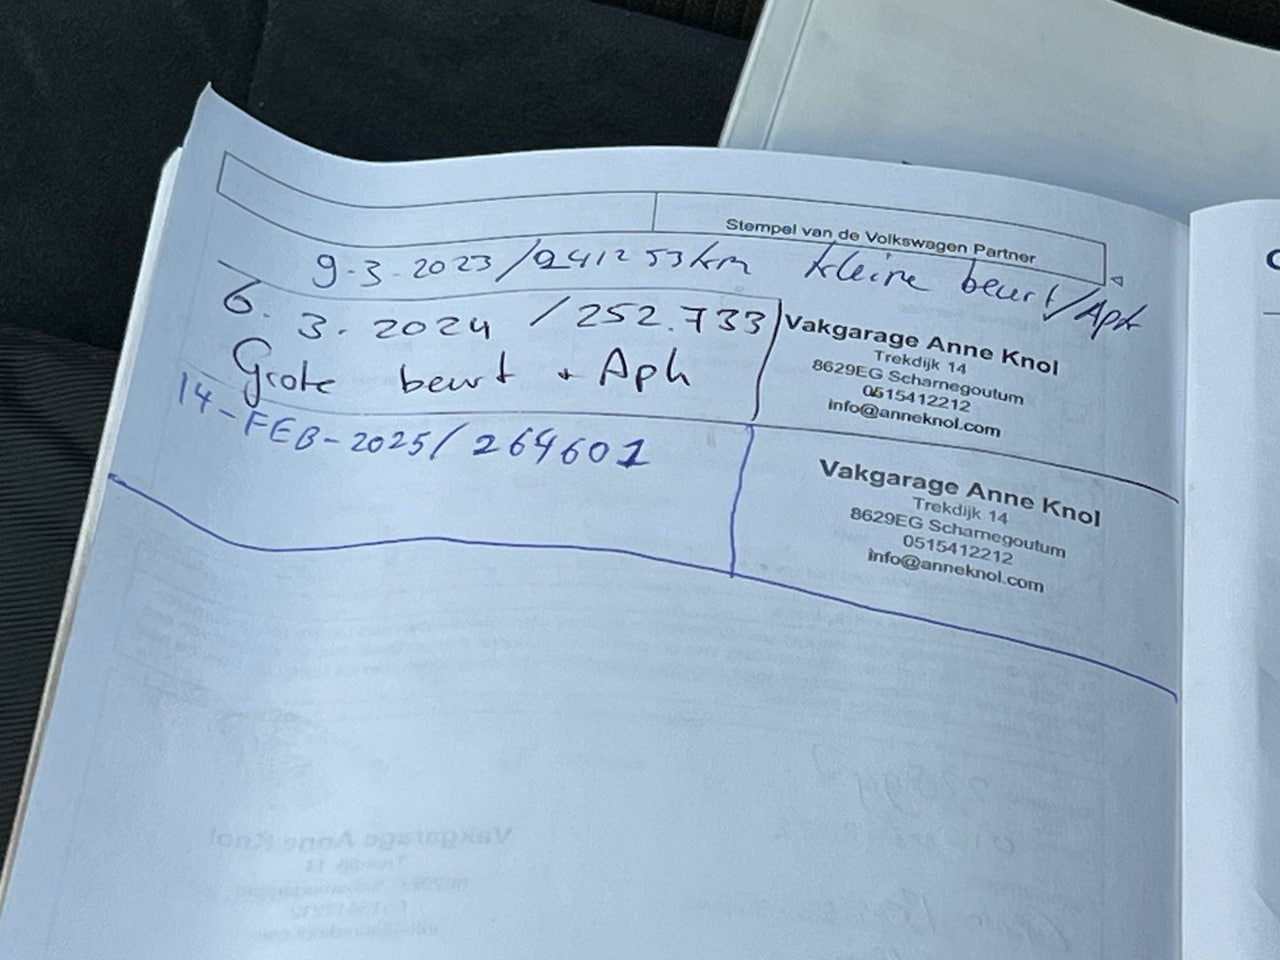 Stempel van de Volkswagen Partner
9-3-2023/241253km kleine beurt/Apk
6.3.2024 / 252.733
Grote beurt + Apk
Vakgarage Anne Knol
Trekdijk 14
8629EG Scharnegoutum
0515412212
info@anneknol.com
14-FEB-2025/ 264601
Vakgarage Anne Knol
Trekdijk 14
8629EG Scharnegoutum
0515412212
info@anneknol.com